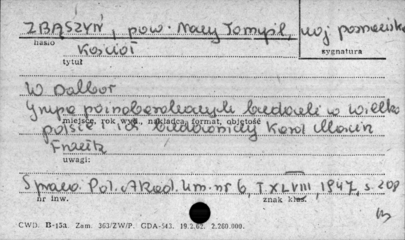 ZBĄSZYŃ, pow. Nowy Tomyśl, woj. poznańskie
hasło
sygnatura
Kościół
tytuł
W Dalbor
Grupa późnobarokowych budowli w Wielko
miejsce, rok wyd., nakładca, format, objętość
polsce i ich budowniczy Karol Marcin
Frantz
uwagi:
Spraw. Pol. Akad. Um. nr 6, T XLVIII, 1947, s. 208
nr inw.
znak klas.
CWD. B-13a. Zam. 363/ZW/P. GDA-543. 19.2.62. 2.280.000.